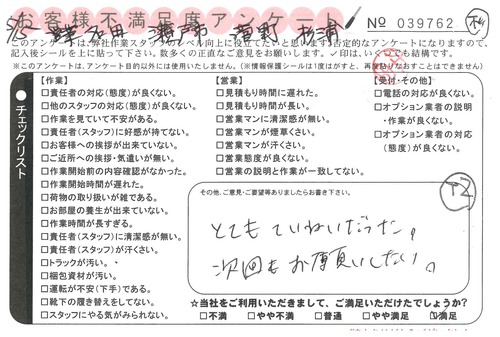 お客様不満足度アンケート
No 039762
このアンケートは、弊社作業スタッフのレベル向上に役立てたいと思います。否定的なアンケートになりますので、
記入後シールを上に貼って下さい。数多くの正直なご意見をお願いします。✓印は、いくつでも結構です。
※このアンケートは、アンケート目的以外には使用いたしません。(※情報保護シールは1度はがすと、再度貼りなおすことはできません)
チェックリスト
【作業】
□責任者の対応(態度)が良くない。
□他のスタッフの対応(態度)が良くない。
□作業を見ていて不安がある。
□責任者(スタッフ)に好感が持てない。
□お客様への挨拶が出来ていない。
□ご近所への挨拶・気遣いが無い。
□作業開始前の内容確認がなかった。
□作業開始時間が遅れた。
□荷物の取り扱いが雑である。
□お部屋の養生が出来ていない。
□作業時間が長すぎる。
□責任者(スタッフ)に清潔感が無い。
□責任者(スタッフ)が汗くさい。
□トラックが汚い。
□梱包資材が汚い。
□運転が不安(下手)である。
□靴下の履き替えをしてない。
□スタッフにやる気がみられない。
【営業】
□見積もり時間に遅れた。
□見積もり時間が長い。
□営業マンに清潔感が無い。
□営業マンが煙草くさい。
□営業マンが汗くさい。
□営業態度が良くない。
□営業の説明と作業が一致してない。
【受付・その他】
□電話の対応が良くない。
□オプション業者の説明
・作業が良くない。
□オプション業者の対応
(態度)が良くない。
その他、ご意見・ご要望等ありましたらお書き下さい。
とてもていねいだった。
次回もお願いしたい。
☆当社をご利用いただきまして、ご満足いただけたでしょうか?
□不満 □やや不満 □普通 □やや満足 ☑満足